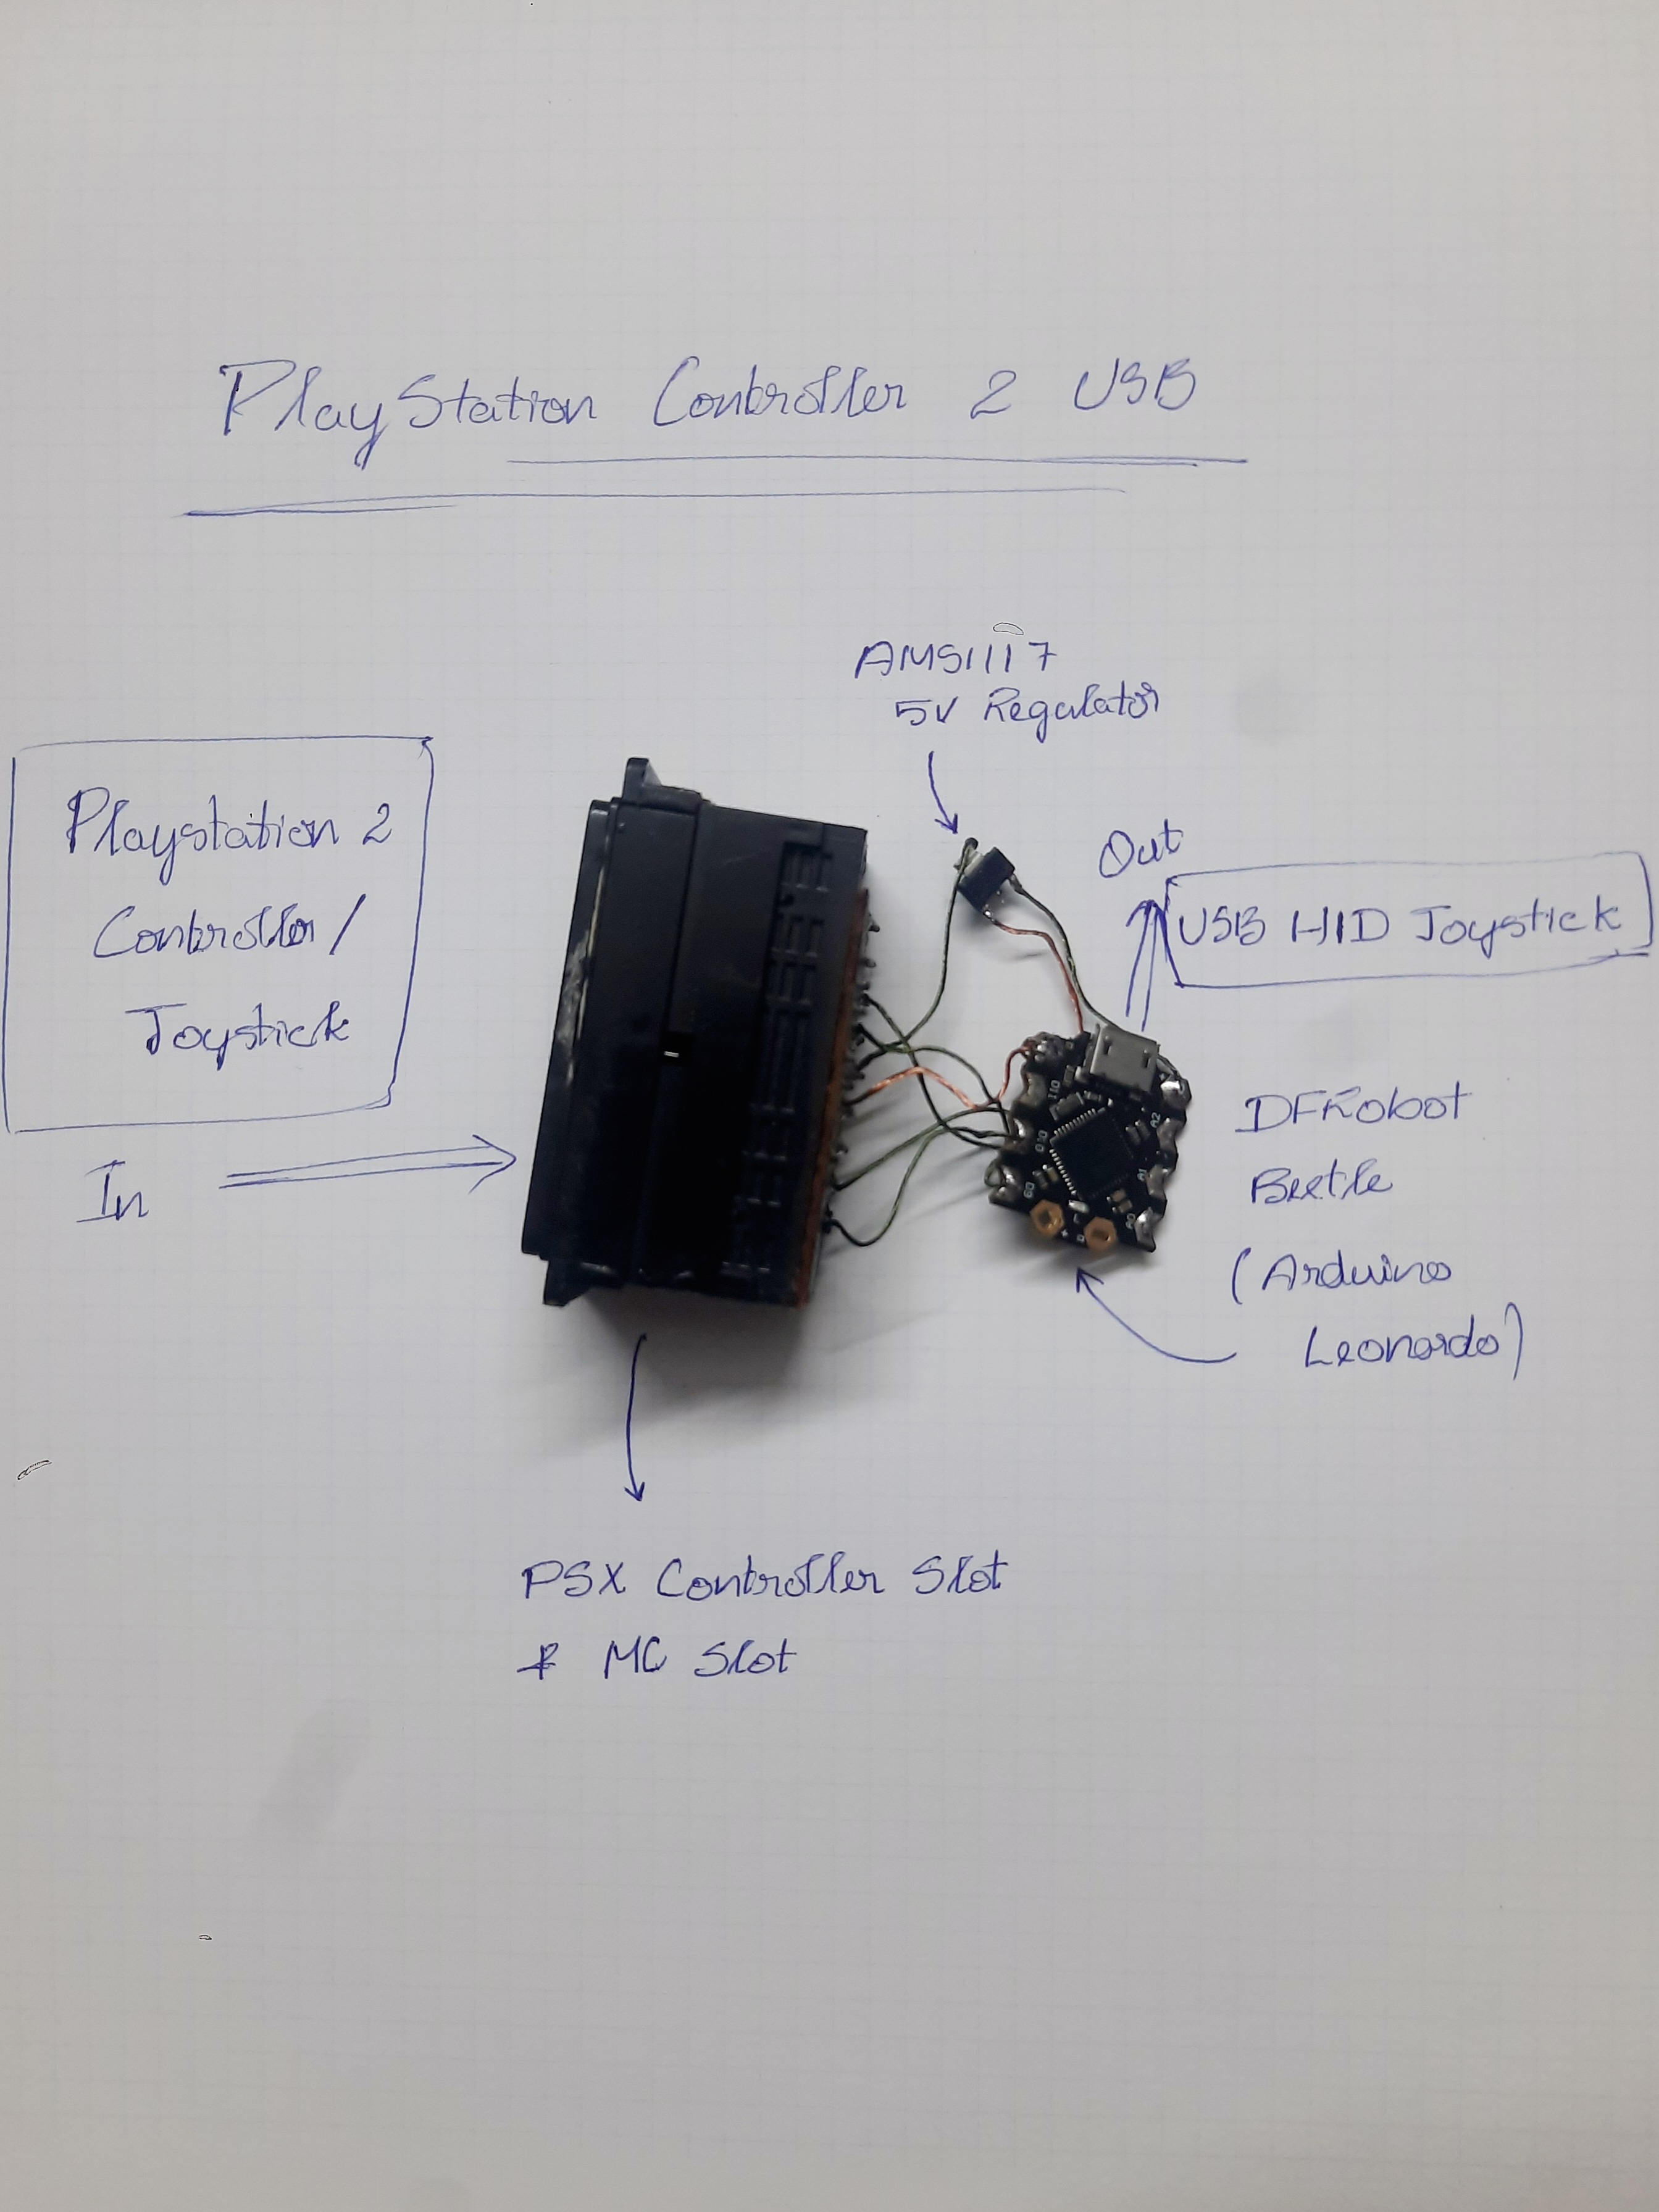 PlayStation Controller 2 USB
AMS1117
5V Regulator
Playstation 2
Controller/
Joystick
In
Out
USB HID Joystick
DFRobot
Beetle
(Arduino
Leonardo)
PSX Controller Slot
+ MC Slot
D11
D10
D9
A2
A1
A0